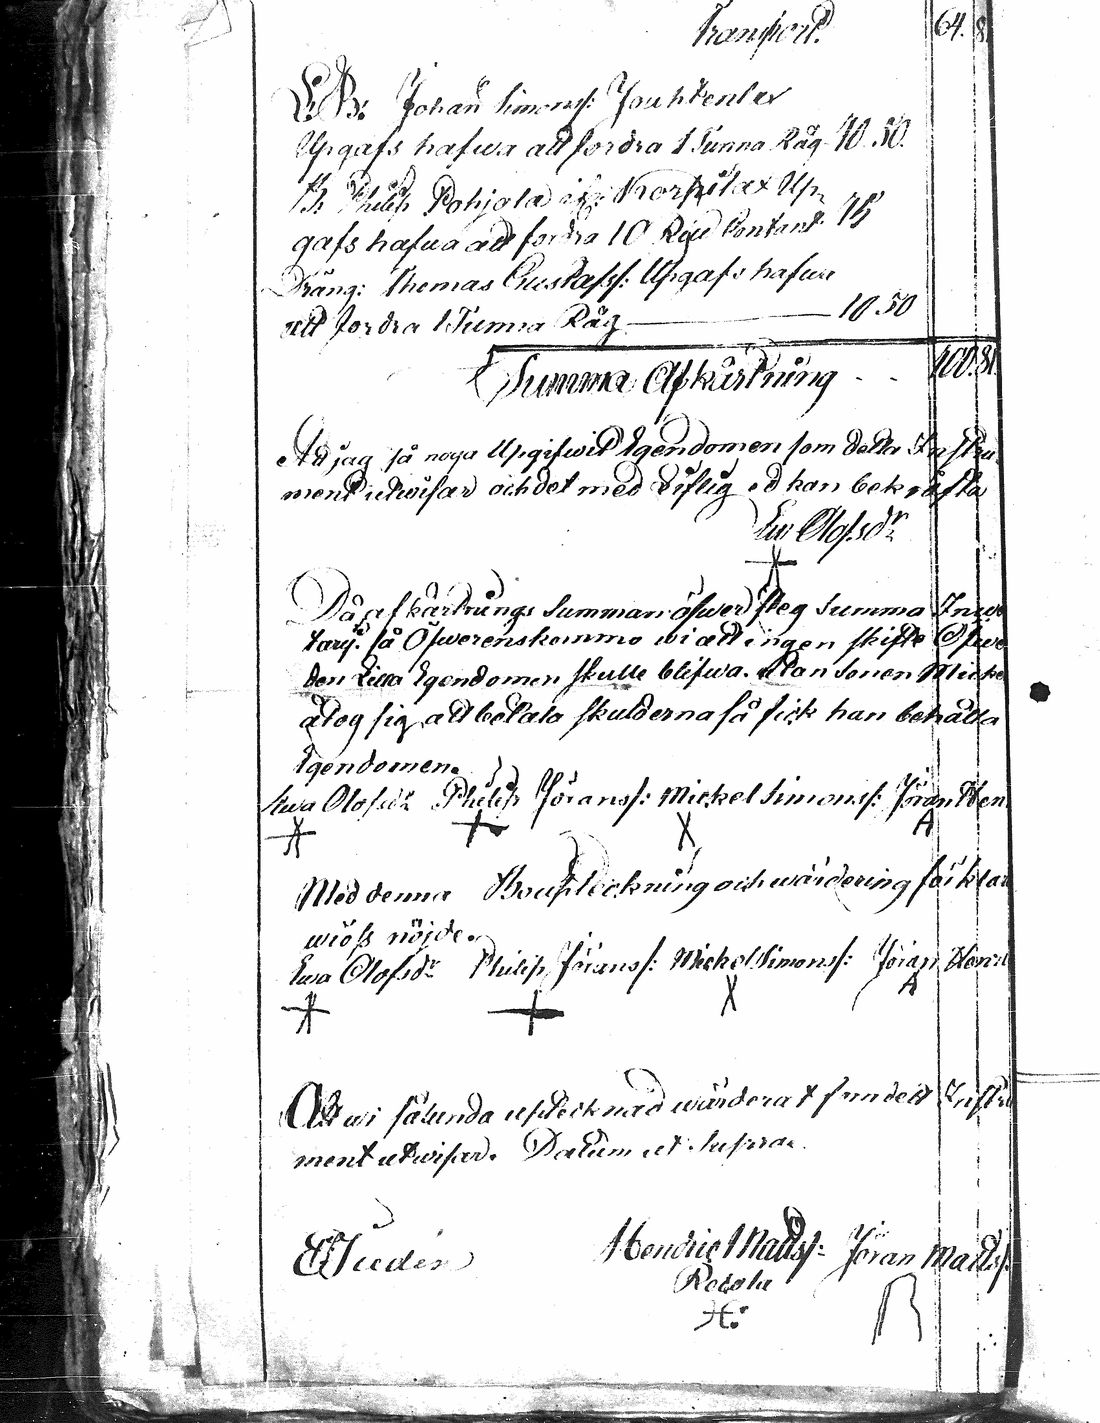 Transport. 64. 8.
L: B: Johan Simonss: Jouhtenlax
Upgafs hafwa att fordra 1 Tunna Råg 10.50.
Philip Pohjala Korpilax Up-
gafs hafwa att fordra 10 Rd Contant 15
Dräng: Thomas Gustafss: Upgafs hafwa
att fordra 1 Tunna Råg 10.50
Summa Afkårtning - - 100.8
At jag så noga Upgifwit Egendomen som detta Instru-
ment utwisar och det med Liflig ed kan bekräfta
Ew Olofsdr
Då afkårtnings Summan öfwersteg Summa Inwe
tarj: så Öfwerenskommo wi att ingen skifte Öfwe
den Lilla Egendomen skulle blifwa. Utan Sonen Micke
åtog sig att betala skulderna så fick han behålla
Egendomen.
Ewa Olofsdr Philip Jöranss: Mickel Simonss: Jöran Hen
A
Med denna Boupteckning och wärdering förklar
wi oss nöjde.
Ewa Olofsdr Philip Jöranss: Mickel Simonss: Jöran Henr
A
Att wi sålunda uptecknad wärderat funnet Instru
ment utwisar. Datum ut Supra.
Hendric Matss: Jöran Matss:
H: